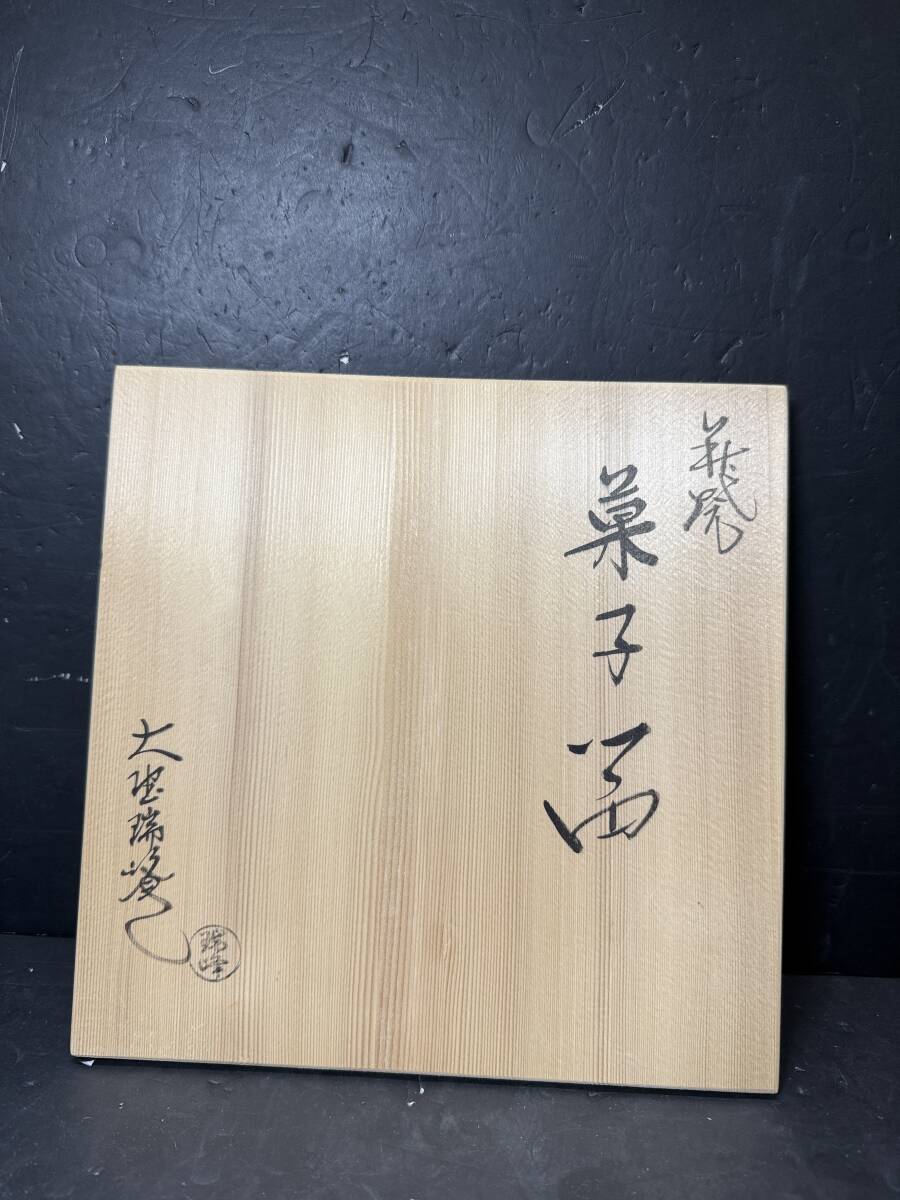 萩焼
菓子器
大野瑞峰
瑞峰